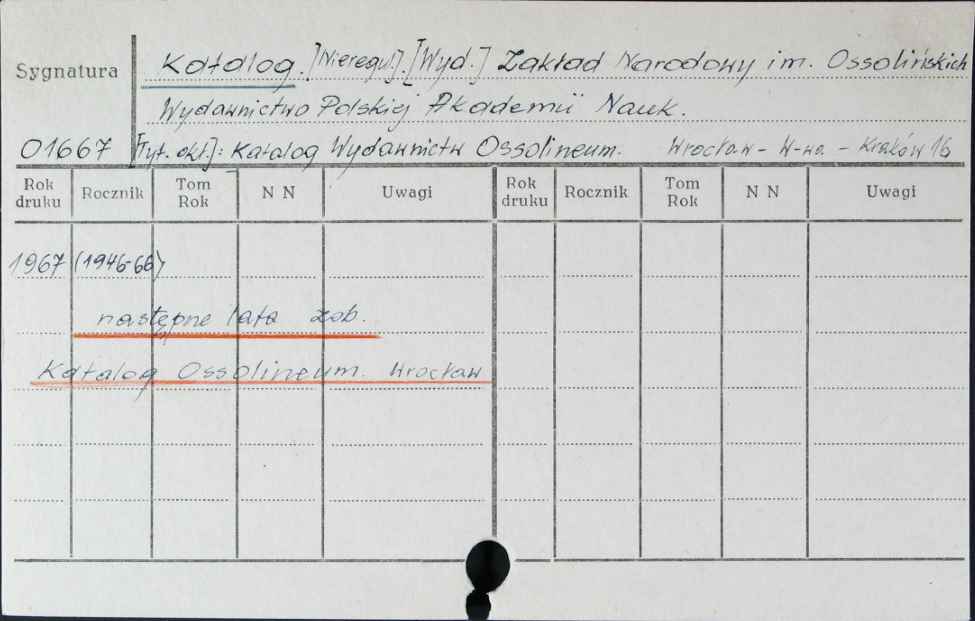 Sygnatura
Katalog. [Nieregul]. [Wyd.] Zakład Narodowy im. Ossolińskich
Wydawnictwo Polskiej Akademii Nauk.
01667 [Tyt. okł.]: Katalog Wydawnictw Ossolineum. Wrocław - W-wa - Kraków 16
Rok druku Rocznik Tom Rok N N Uwagi Rok druku Rocznik Tom Rok N N Uwagi
1967 (1946-66)
następne lata zob.
Katalog Ossolineum. Wrocław